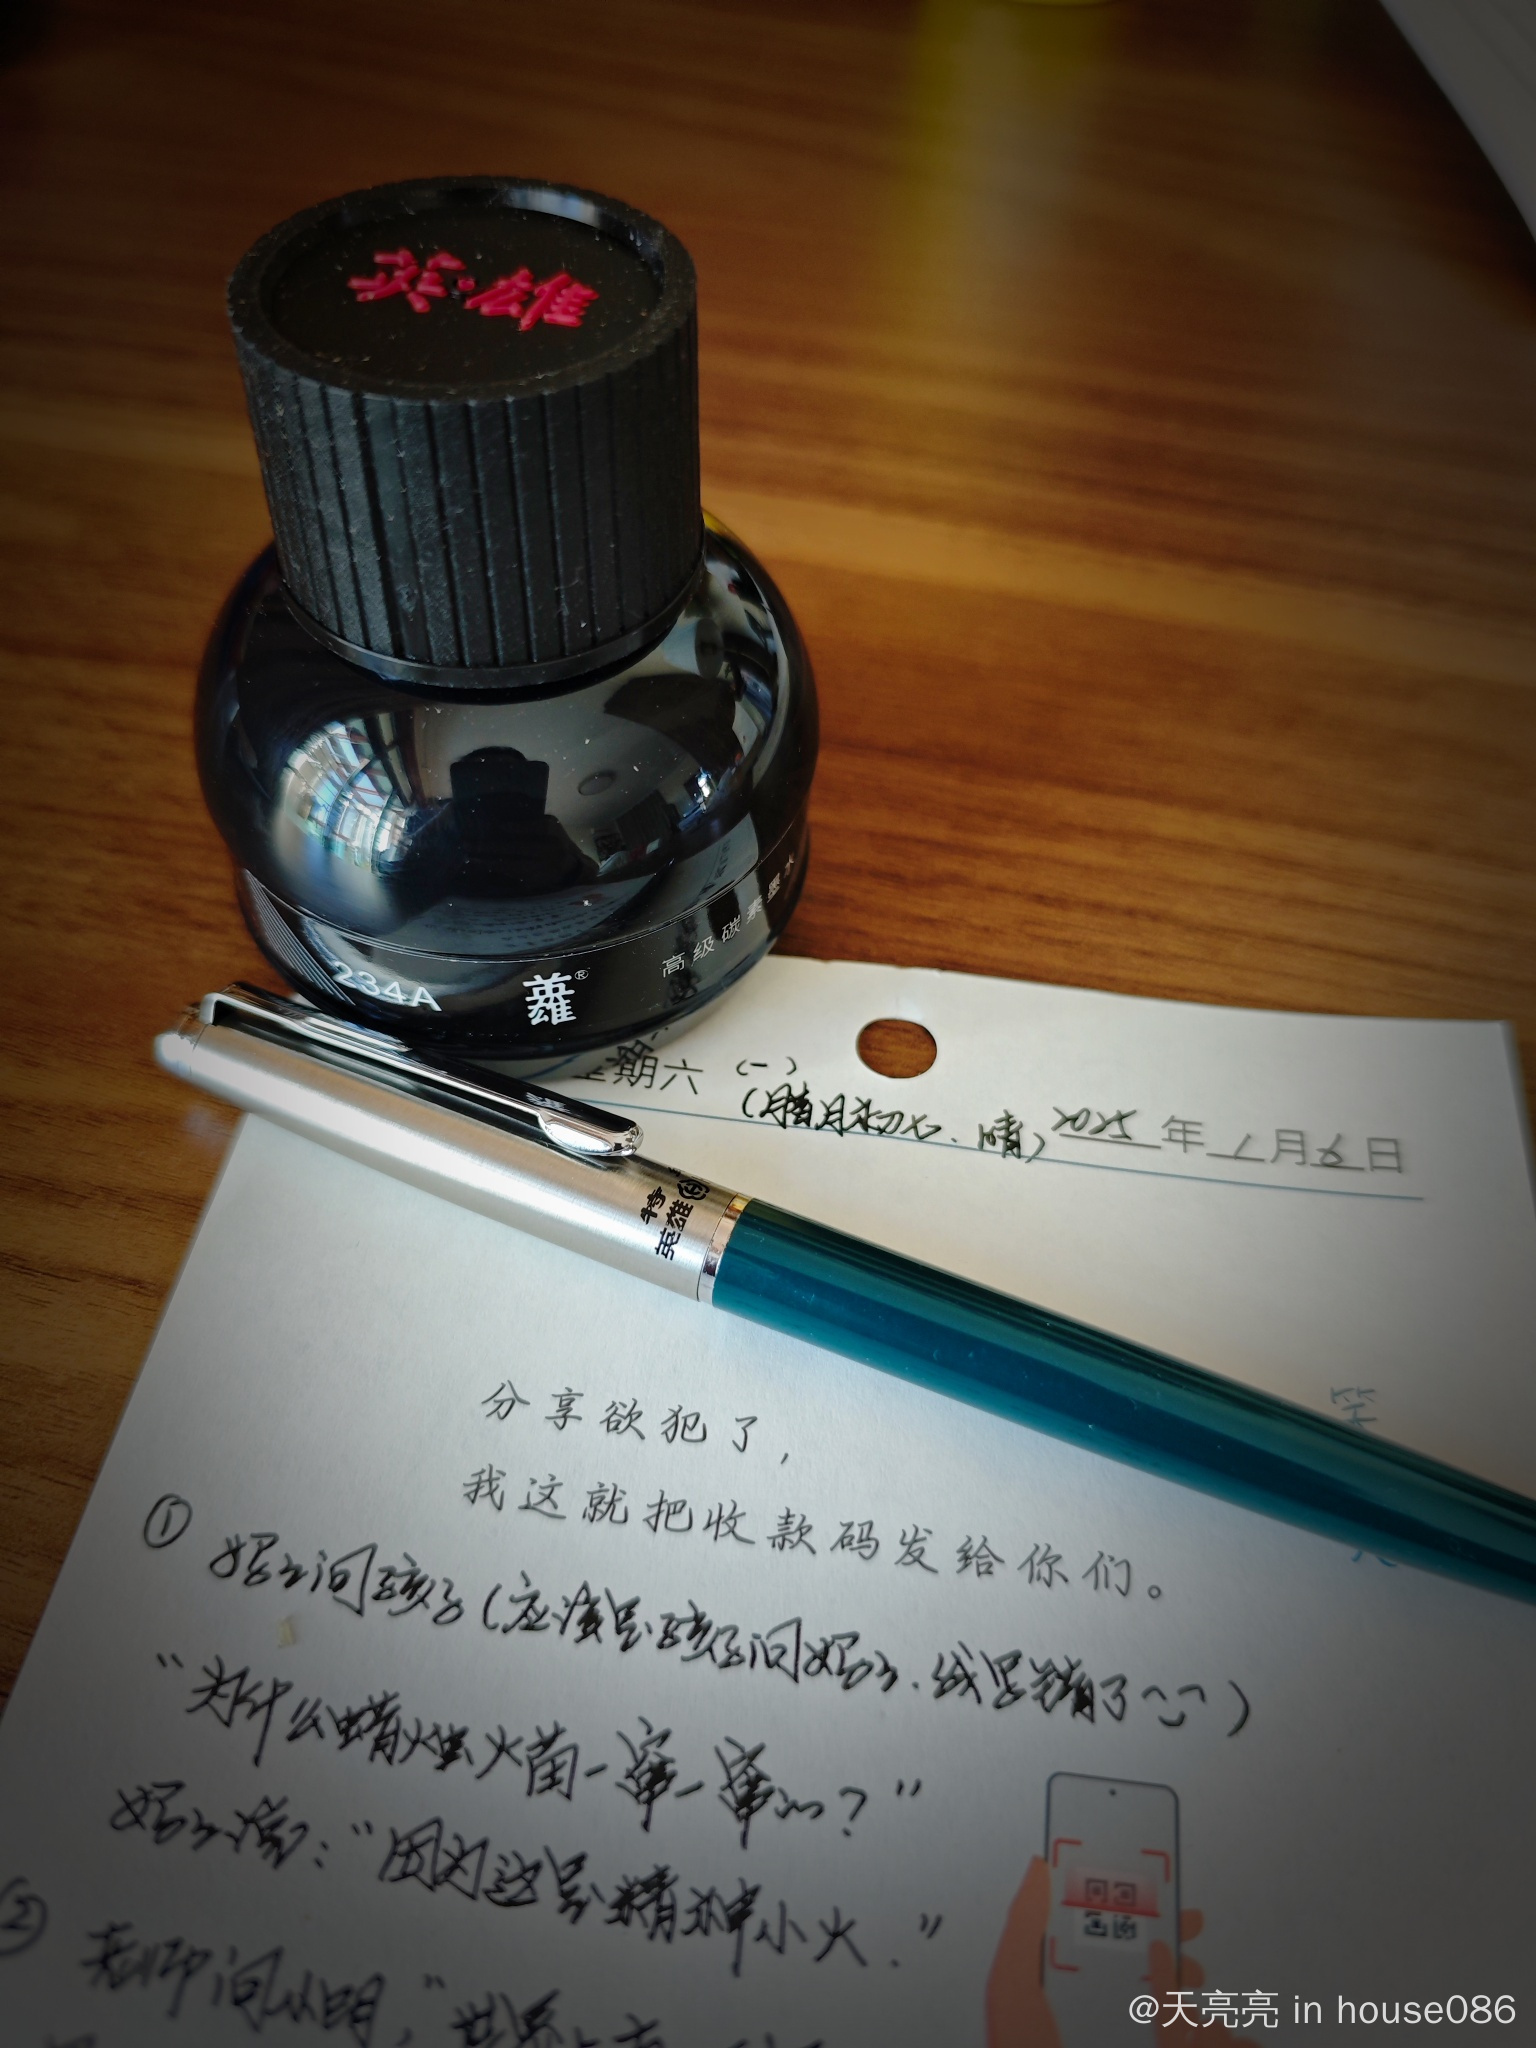 英雄
234A
英雄®
高级碳素墨水
星期六 (一)
(腊月初七、晴) 2025年1月6日
特
英雄
分享欲犯了,
我这就把收款码发给你们。
笑
① 妈妈问孩子(应该是孩子问妈妈,我写错了
"为什么蜡烛火苗一窜一窜的?"
妈妈说:"因为这是精神小火."
② 老师问小明,"世界上
@天亮亮 in house086